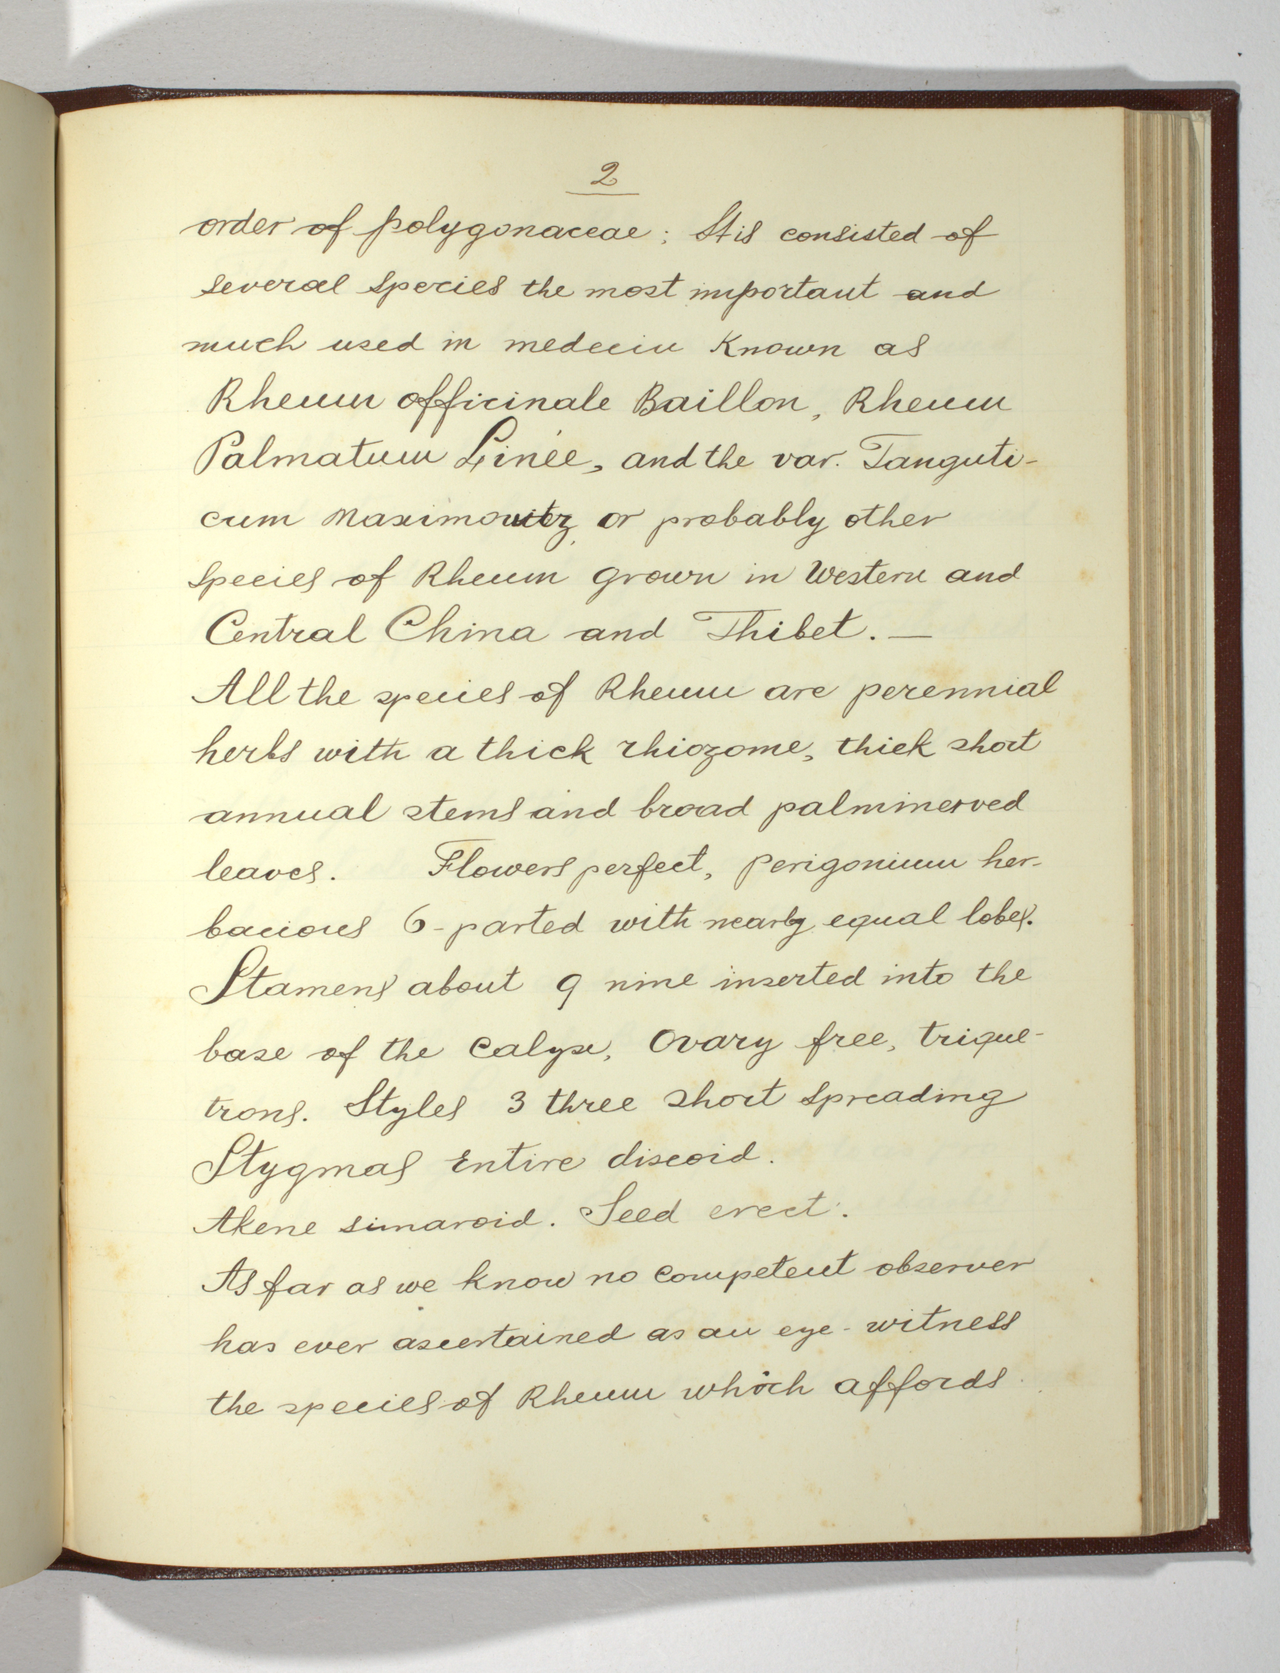 2
order of polygonaceae; It is consisted of
several species the most important and
much used in medecin Known as
Rheum officinale Baillon, Rheum
Palmatum Linée, and the var. Tanguti-
cum Maximowitz, or probably other
species of Rheum grown in Western and
Central China and Thibet. —
All the species of Rheum are perennial
herbs with a thick rhiozome, thick short
annual stems and broad palminerved
leaves. Flowers perfect, perigonium her-
bacious 6-parted with nearly equal lobes.
Stamens about 9 nine inserted into the
base of the Calyx, Ovary free, trique-
trons. Styles 3 three short spreading
Stygmas Entire discoid.
Akene simaroid. Seed erect.
As far as we know no competent observer
has ever ascertained as an eye-witness
the species of Rheum which affords